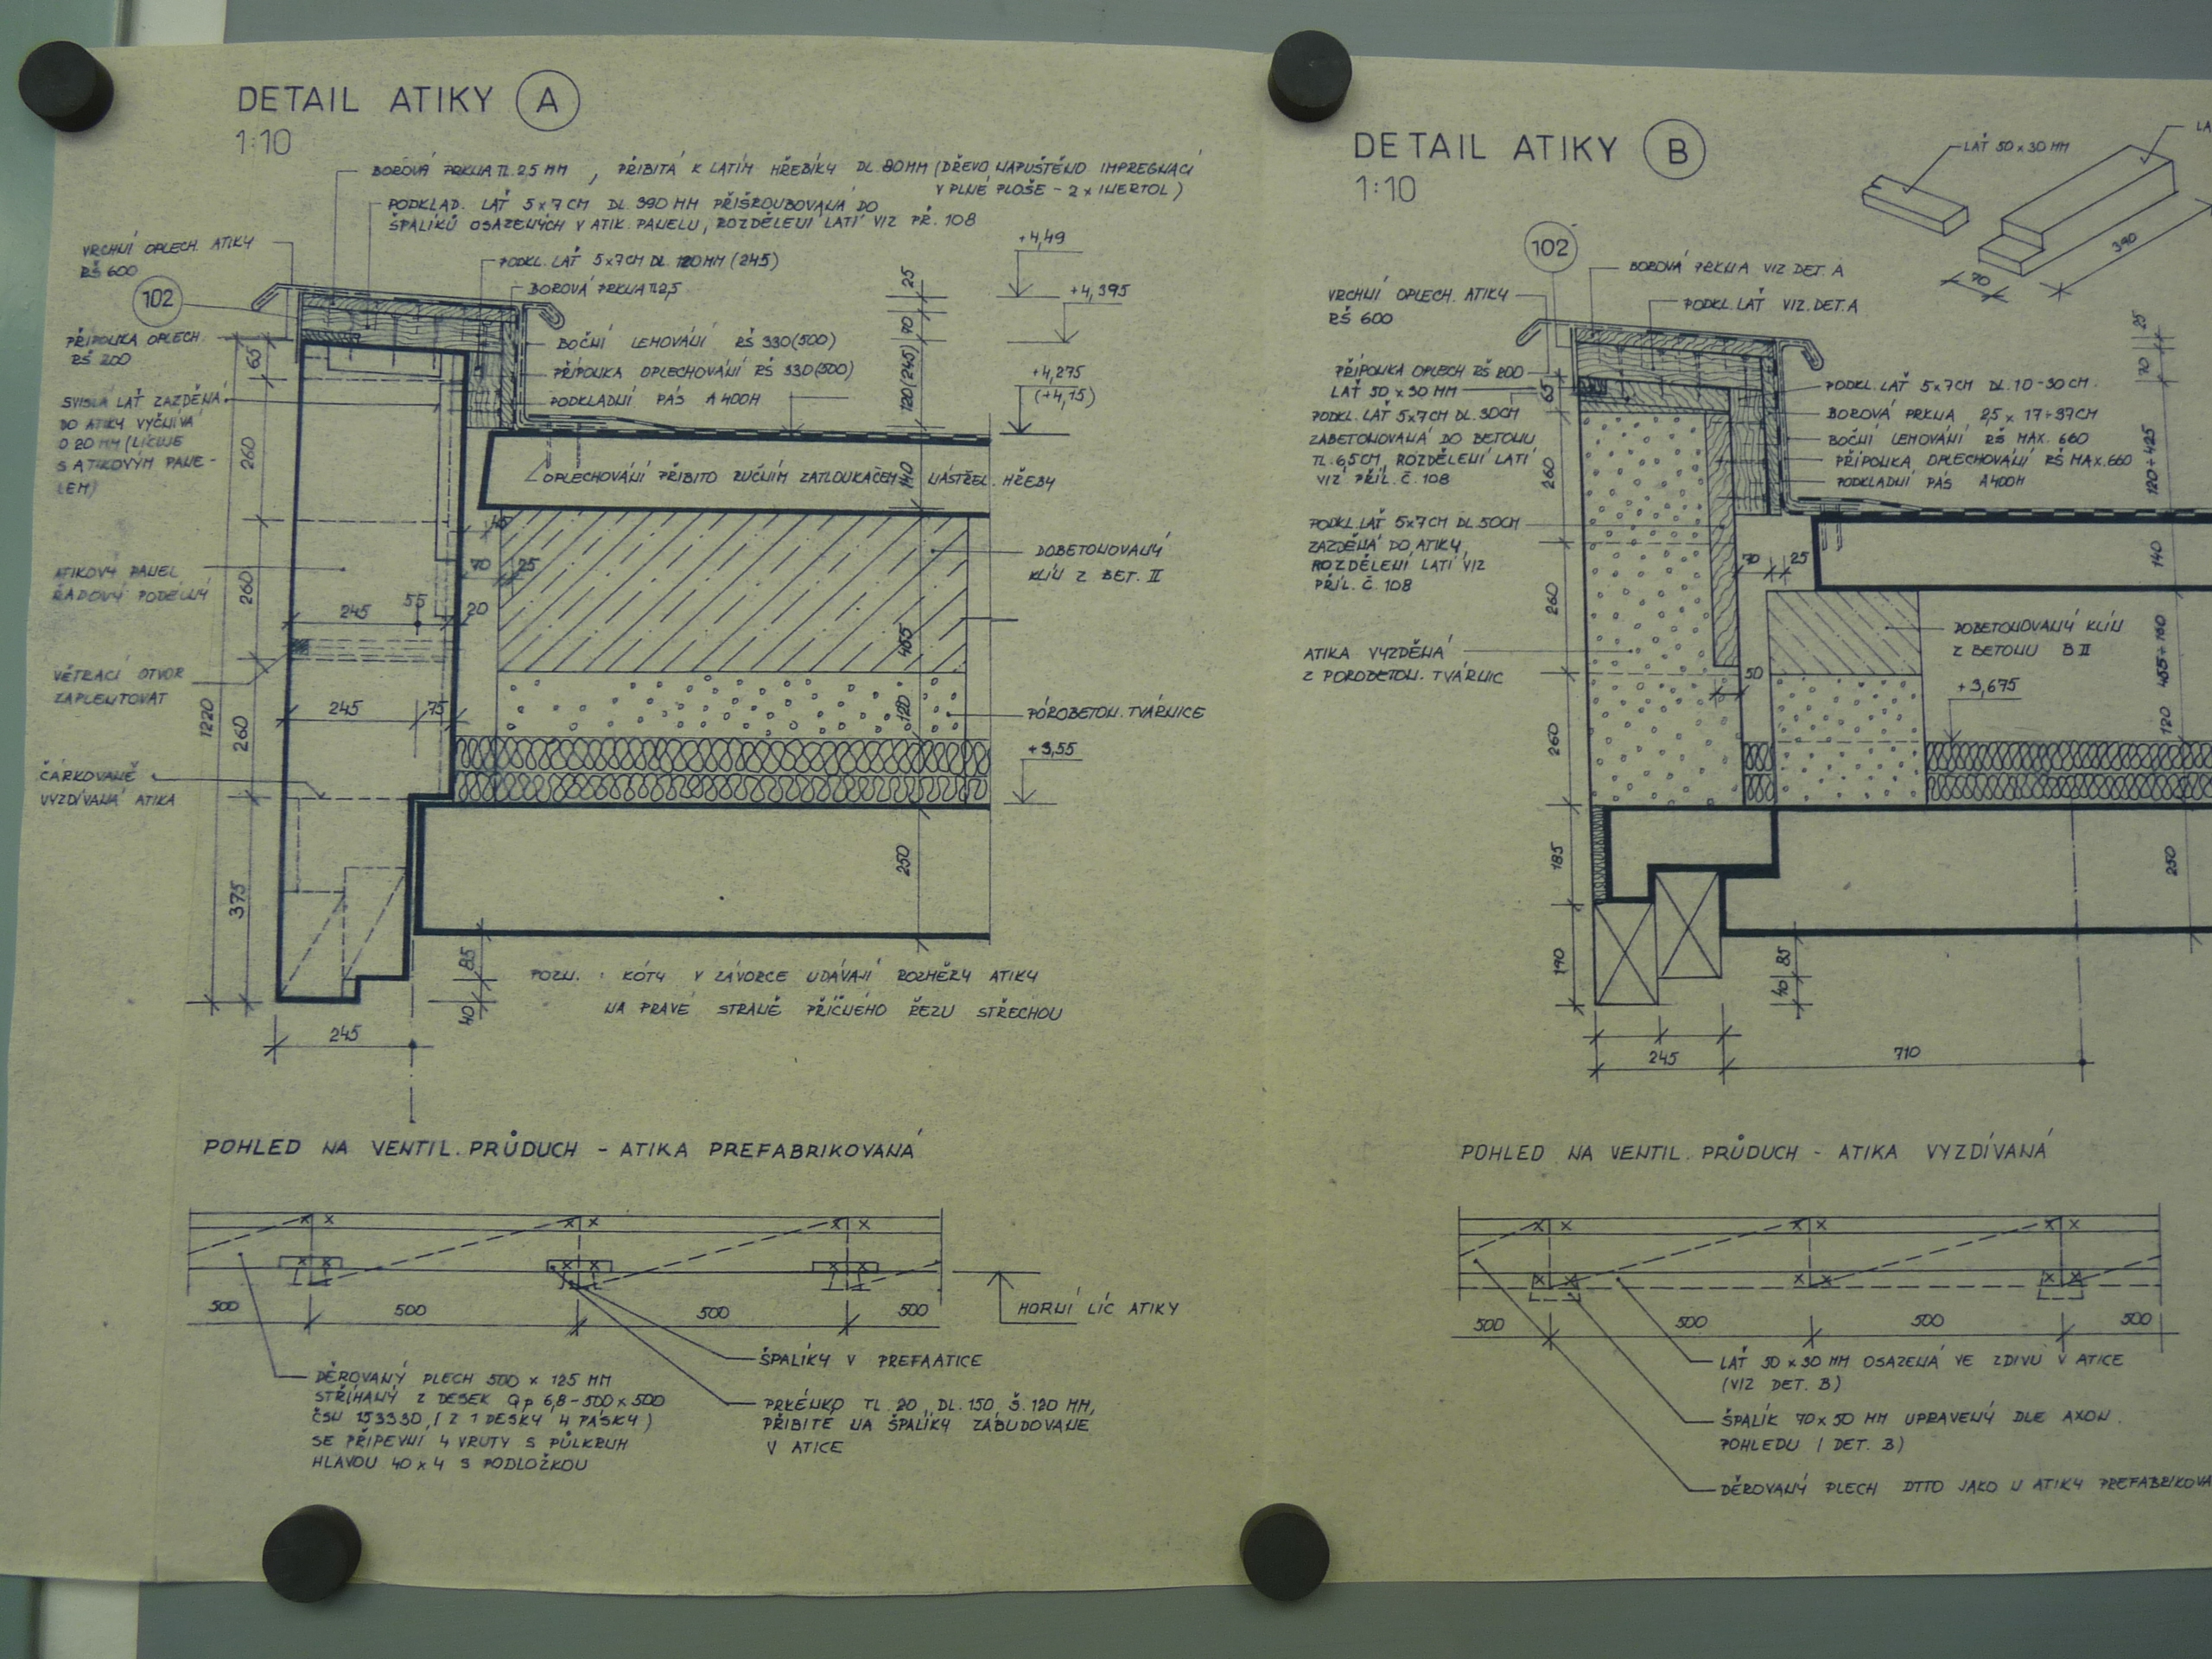 DETAIL ATIKY A
1:10
BOROVÁ PRKNA TL. 25 MM , PŘIBITÁ K LATÍM HŘEBÍKY DL. 80 MM (DŘEVO NAPUŠTĚNO IMPREGNACÍ
V PLNÉ PLOŠE - 2 x INERTOL)
PODKLAD. LAŤ 5x7 CM DL. 390 MM PŘIŠROUBOVANÁ DO
ŠPALÍKŮ OSAZENÝCH V ATIK. PANELU, ROZDĚLENÍ LATÍ VIZ PŘ. 108
VRCHNÍ OPLECH. ATIKY
RŠ 600
102
PODKL. LAŤ 5x7 CM DL. 120 MM (245)
BOROVÁ PRKNA TL 2,5
+4,49
+4,395
25
70
120 (245)
PŘÍPONKA OPLECH.
RŠ 200
65
BOČNÍ LEMOVÁNÍ RŠ 330 (500)
PŘÍPONKA OPLECHOVÁNÍ RŠ 330 (500)
PODKLADNÍ PÁS A 400H
+4,275
(+4,15)
SVISLÁ LAŤ ZAZDĚNÁ
DO ATIKY VYČNÍVÁ
O 20 MM (LÍCUJE
S ATIKOVÝM PANE-
LEM)
260
OPLECHOVÁNÍ PŘIBITO RUČNÍM ZATLOUKAČEM NÁSTŘEL. HŘEBY
140
DOBETONOVANÝ
KLÍN Z BET. II
70
25
ATIKOVÝ PANEL
ŘADOVÝ PODÉLNÝ
260
245
55
20
455
VĚTRACÍ OTVOR
ZAPLENTOVAT
1220
260
245
75
120
PÓROBETON. TVÁRNICE
+3,55
ČÁRKOVANĚ
VYZDÍVANÁ ATIKA
375
250
85
40
245
POZN. : KÓTY V ZÁVORCE UDÁVAJÍ ROZMĚRY ATIKY
NA PRAVÉ STRANĚ PŘÍČNÉHO ŘEZU STŘECHOU
POHLED NA VENTIL. PRŮDUCH - ATIKA PREFABRIKOVANÁ
500
500
500
500
HORNÍ LÍC ATIKY
ŠPALÍKY V PREFAATICE
DĚROVANÝ PLECH 500 x 125 MM
STŘÍHANÝ Z DESEK Qp 6,8-500x500
ČSN 153330, (Z 1 DESKY 4 PÁSKY)
SE PŘIPEVNÍ 4 VRUTY S PŮLKRUH
HLAVOU 40 x 4 S PODLOŽKOU
PRKÉNKO TL. 20, DL. 150, Š. 120 MM,
PŘIBITÉ NA ŠPALÍKY ZABUDOVANÉ
V ATICE
DETAIL ATIKY B
1:10
LAŤ 50 x 30 MM
LA
390
70
102
BOROVÁ PRKNA VIZ DET. A
VRCHNÍ OPLECH. ATIKY
RŠ 600
PODKL. LAŤ VIZ. DET. A
25
70
PŘÍPONKA OPLECH RŠ 200
LAŤ 50 x 30 MM
65
PODKL. LAŤ 5x7 CM DL. 30CM
ZABETONOVANÁ DO BETONU
TL. 6,5CM, ROZDĚLENÍ LATÍ
VIZ PŘÍL. Č. 108
PODKL. LAŤ 5x7CM DL. 10-30 CM.
BOROVÁ PRKNA 2,5 x 17÷37CM
BOČNÍ LEMOVÁNÍ RŠ MAX. 660
PŘÍPONKA OPLECHOVÁNÍ RŠ MAX. 660
PODKLADNÍ PÁS A400H
120÷425
260
PODKL. LAŤ 5x7 CM DL. 50CM
ZAZDĚNÁ DO ATIKY,
ROZDĚLENÍ LATÍ VIZ
PŘÍL. Č. 108
70
25
140
260
ATIKA VYZDĚNÁ
Z POROBETON. TVÁRNIC
DOBETONOVANÝ KLÍN
Z BETONU B II
50
+3,675
455÷160
120
260
185
190
250
85
40
245
710
POHLED NA VENTIL. PRŮDUCH - ATIKA VYZDÍVANÁ
500
500
500
500
LAŤ 50 x 30 MM OSAZENÁ VE ZDIVU V ATICE
(VIZ DET. B)
ŠPALÍK 70 x 50 MM UPRAVENÝ DLE AXON.
POHLEDU (DET. B)
DĚROVANÝ PLECH DTTO JAKO U ATIKY PREFABRIKOVA